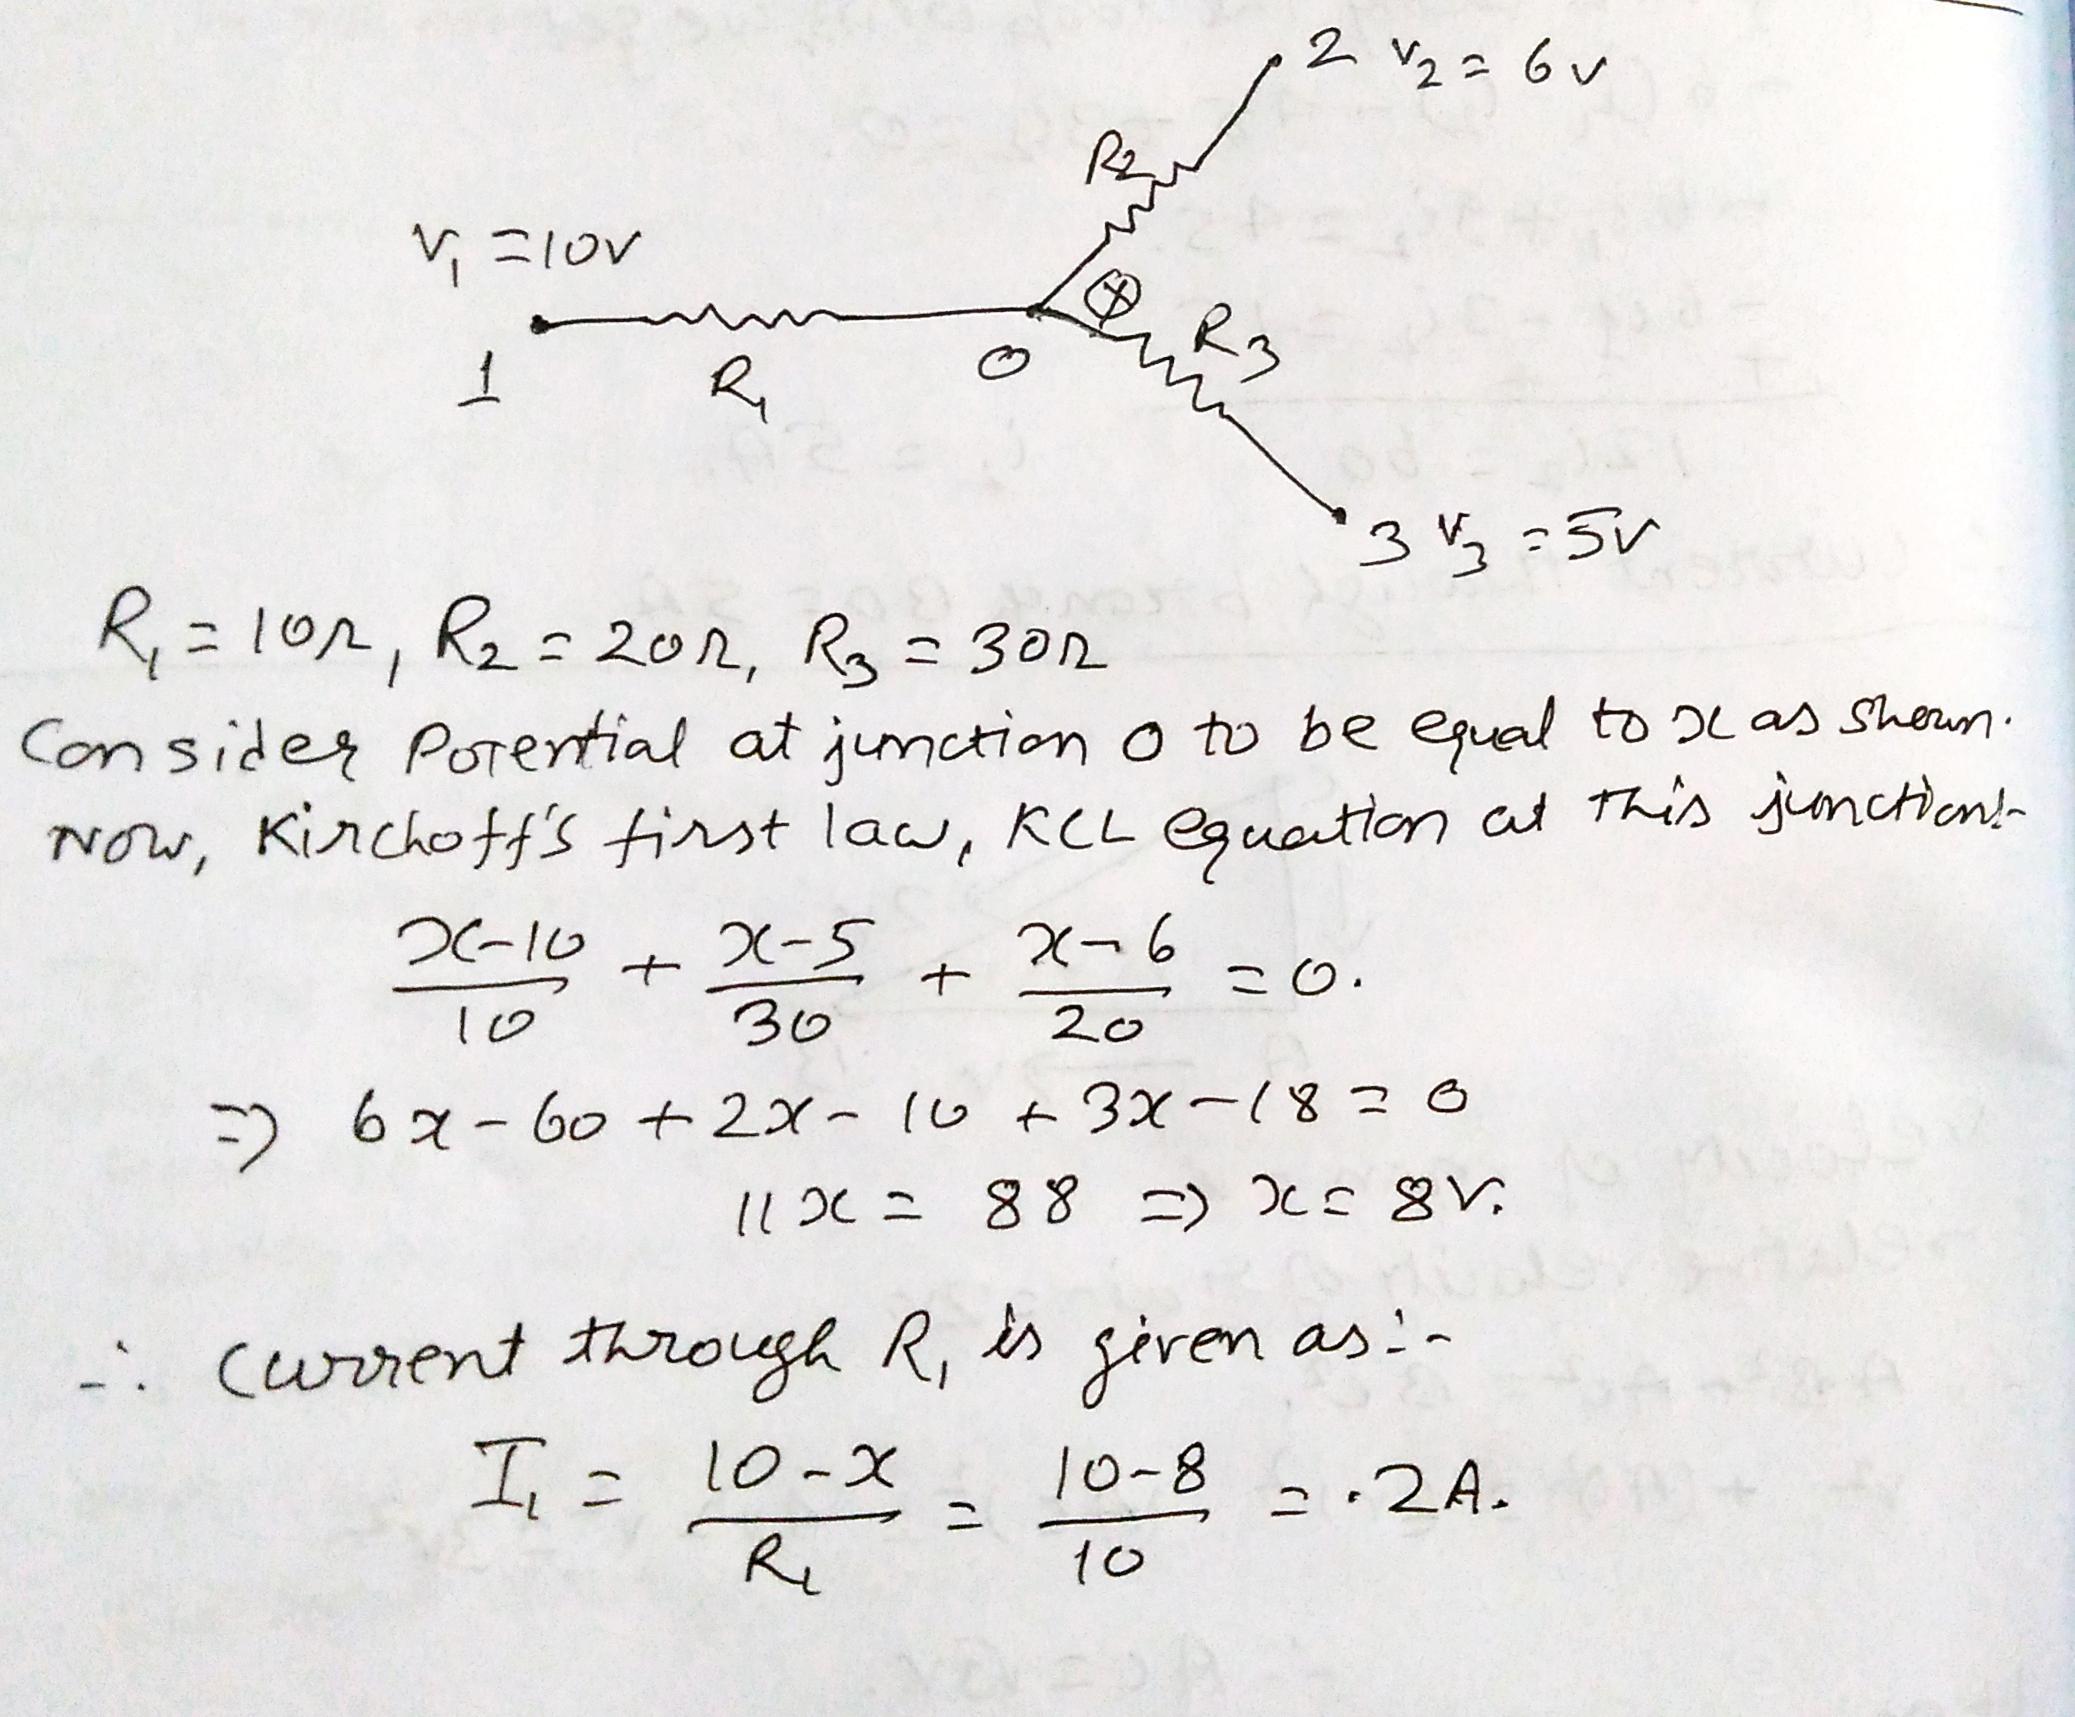 2 V₂ = 6v
R₂
V₁ = 10v
x
R₃
1
R₁
O
3 V₃ = 5v
R₁ = 10Ω, R₂ = 20Ω, R₃ = 30Ω
Consider Potential at junction O to be equal to x as shown.
Now, Kirchoff's first law, KCL equation at this junction:-
(x-10)/10 + (x-5)/30 + (x-6)/20 = 0.
=> 6x - 60 + 2x - 10 + 3x - 18 = 0
11x = 88 => x = 8V.
∴ Current through R₁ is given as:-
I₁ = (10-x)/R₁ = (10-8)/10 = .2A.